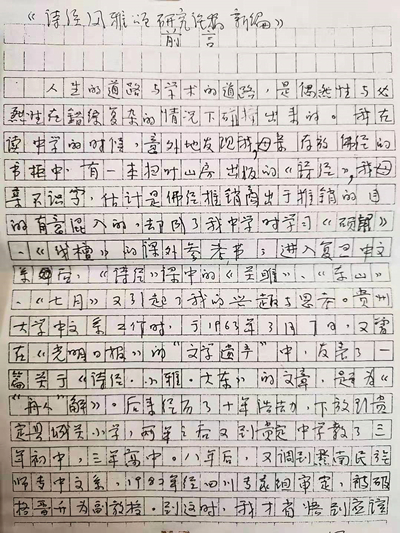 《诗经风雅颂研究论稿新编》
前言
人生的道路与学术的道路，是偶然性与必
然性在错综复杂的情况下研拼出来的。我在
读中学的时候，意外地发现我母亲存放佛经的
书柜中，有一本扫叶山房出版的《诗经》，我母
亲不识字，估计是佛经推销商出于推销的目
的有意混入的，却同了我中学时学习《硕鼠》
、《伐檀》的课外参考书；进入复旦中文
系后，《诗经》课中的《关雎》、《东山》
、《七月》又引起了我的兴趣与思亦。贵州
大学中文系工作时，于1963年3月7日，又曾
在《光明日报》的“文学遗产”中，发表了一
篇关于《诗经·小雅·大东》的文章，是为《
“舟人”解》。后来经历了十年浩劫，下放到贵
定县城关小学，两年之后又到贵定中学教了三
年初中，三年高中。八年后，又调到黔南民族
师专中文系，1987年经四川专家组审定，被破
格晋升为副教授。到这时，我才省悟到应该